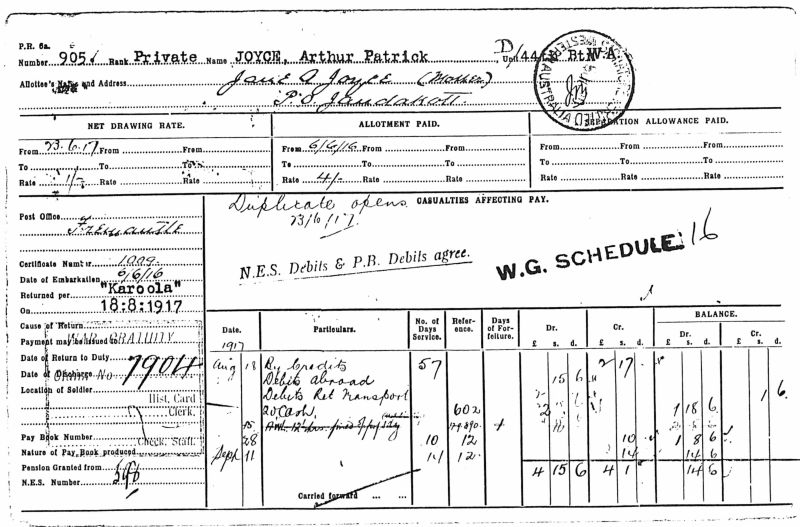 P.R. 6a.
Number 905 Rank Private Name JOYCE, Arthur Patrick Unit D/44 Btn W.A
Allottee's Name and Address Jane A Joyce (Mother)
P.O. Jandakott.
WESTERN AUSTRALIA
NET DRAWING RATE. ALLOTMENT PAID. SEPARATION ALLOWANCE PAID.
From 23.6.17 From From From 6/6/16 From From From From
To To To To To To To To
Rate 1/- Rate Rate Rate 4/- Rate Rate Rate Rate
Duplicate opens CASUALTIES AFFECTING PAY.
23/6/17.
Post Office
Fremantle
Certificate Number 1009
Date of Embarkation 6/6/16
Returned per "Karoola"
On 18:8:1917
N.E.S. Debits & P.B. Debits agree.
W.G. SCHEDULE 16
Cause of Return
WAR GRATUITY
Payment may be issued to
Date of Return to Duty
7904
Date of Discharge
Location of Soldier
Hist. Card
Clerk.
Pay Book Number
Check. Staff.
Nature of Pay Book produced
Pension Granted from
N.E.S. Number
BALANCE.
Date. Particulars. No. of Days Service. Reference. Days of Forfeiture. Dr. Cr. Dr. Cr.
£ s. d. £ s. d. £ s. d. £ s. d.
1917
Aug 18 By Credits 57 2 17
Debits abroad 15 6
Debits Ret Transport 1 6
20 Cash. 602 2 1 18 6
28 10 12 10 1 8 6
Sept 11 14 12 14 14 6
4 15 6 4 1 14 6
Carried forward ... ...